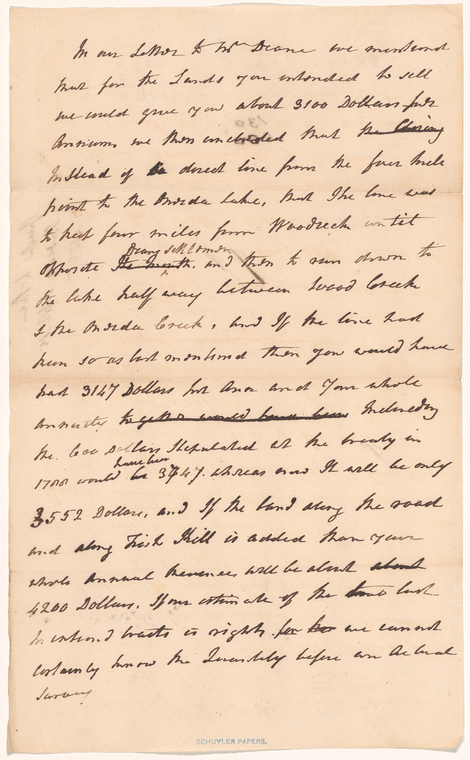 In our Letter to Mr Deane we mentioned
that for the Lands you intended to sell
we would give you about 3100 Dollars per
Annum we then concluded that the
Instead of a direct line from the four mile
point to the Oneida Lake, that The line was
to keep four miles from Woodcreek until
Deans settlement
opposite and then to run down to
the lake half way between Wood Creek
& the Oneida Creek, and If the line had
been so as last mentioned then you would have
had 3147 Dollars per Ann and Your whole
annuity together would have been Including
the 600 Dollars Stipulated at the treaty in
have been
1788 would be 3747. whereas now It will be only
3552 Dollars, and If the land along the road
and along Fish Kill is added then your
whole Annual Revenues will be about about
4200 Dollars. If our estimate of the last
mentioned tracts is right, we cannot
certainly know the Quantity before an Actual
Survey
SCHUYLER PAPERS.